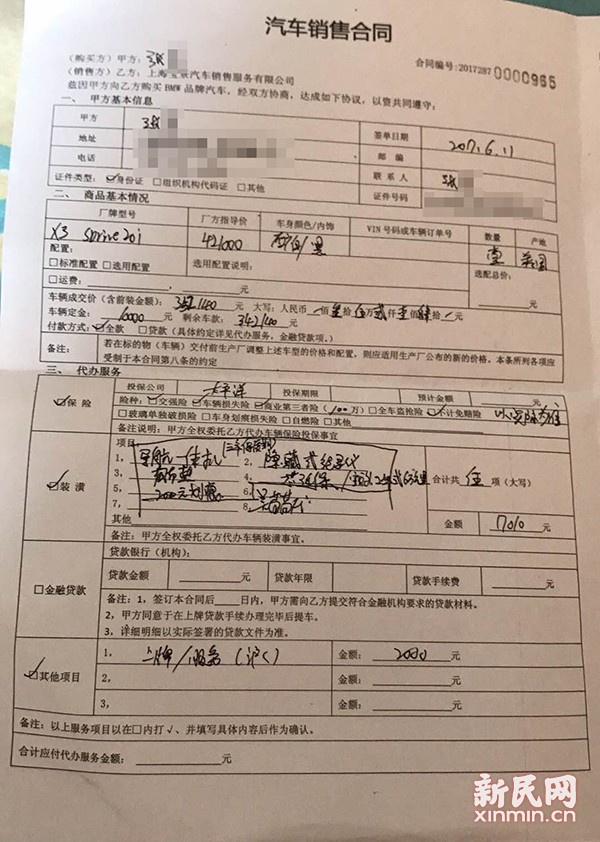 汽车销售合同
合同编号:2017287 0000965
(购买方)甲方:张
(销售方)乙方:上海宝 汽车销售服务有限公司
兹因甲方向乙方购买 BMW 品牌汽车,经双方协商,达成如下协议,以资共同遵守:
一、 甲方基本信息
甲方 张 签单日期 2017.6.11
地址 邮 编
电话 联 系 人 张
证件类型:☑身份证 □组织机构代码证 □其他 证件号码
二、 商品基本情况
厂牌型号 厂方指导价 车身颜色/内饰 VIN 号码或车辆订单号 数量 产地
X3 sDrive20i 421000 白/黑 壹 美国
配置: 选配总价:
□标准配置 □选用配置 选用配置说明: 元
□运费: 元
车辆成交价(含前装金额): 352100 大写:人民币 佰 叁 拾 伍 万 贰 仟 壹 佰 拾 元
车辆定金: 10000 剩余车款: 342100 元
付款方式:☑全款 □贷款(具体约定详见代办服务,金融贷款项。)
备注: 若在标的物(车辆)交付前生产厂调整上述车型的价格和配置,则应适用生产厂公布的新的价格。本条所列各项应
受制于本合同第八条的约定
三、 代办服务
☑保险
投保公司 太平洋 投保期限 预计金额 元
险种:☑交强险 ☑车辆损失险 ☑商业第三者险(100万) □全车盗抢险 ☑不计免赔险 以实际为准
□玻璃单独破损险 □车身划痕损失险 □自燃险 □其他
备注说明:甲方全权委托乙方代办车辆保险投保事宜
☑装潢
项目
1, 导航一体机 2, 隐藏式记录仪
3, 4,
5, 2000元 6,
7, 8,
合计共 伍 项(大写)
其他 金额 7010 元
备注:甲方全权委托乙方代办车辆装潢事宜。
□金融贷款
贷款银行(机构):
贷款金额 元 贷款年限 贷款手续费 元
备注:1,签订本合同后 日内,甲方需向乙方提交符合金融机构要求的贷款材料。
2,甲方同意于在上牌贷款手续办理完毕后提车。
3,详细明细以实际签署的贷款文件为准。
☑其他项目
1, 上牌/服务(沪C) 金额: 2000 元
2, 金额: 元
3, 金额: 元
备注:以上服务项目以在□内打√、并填写具体内容后作为确认。
合计应付代办服务金额: 元
新民网
xinmin.cn